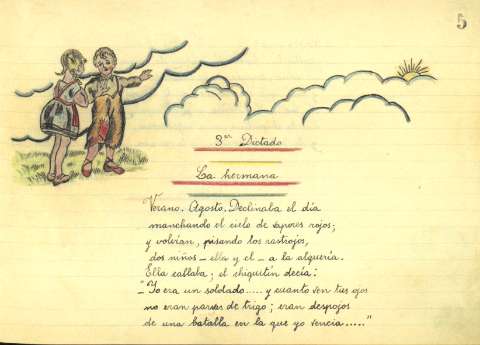 5
3er Dictado
La hermana
Verano. Agosto. Declinaba el día
manchando el cielo de vapores rojos;
y volvían, pisando los rastrojos,
dos niños – ella y el – a la alquería.
Ella callaba; el chiquitín decía:
"Yo era un soldado..... y cuanto ven tus ojos
no eran parvas de trigo; eran despojos
de una batalla en la que yo vencía....."